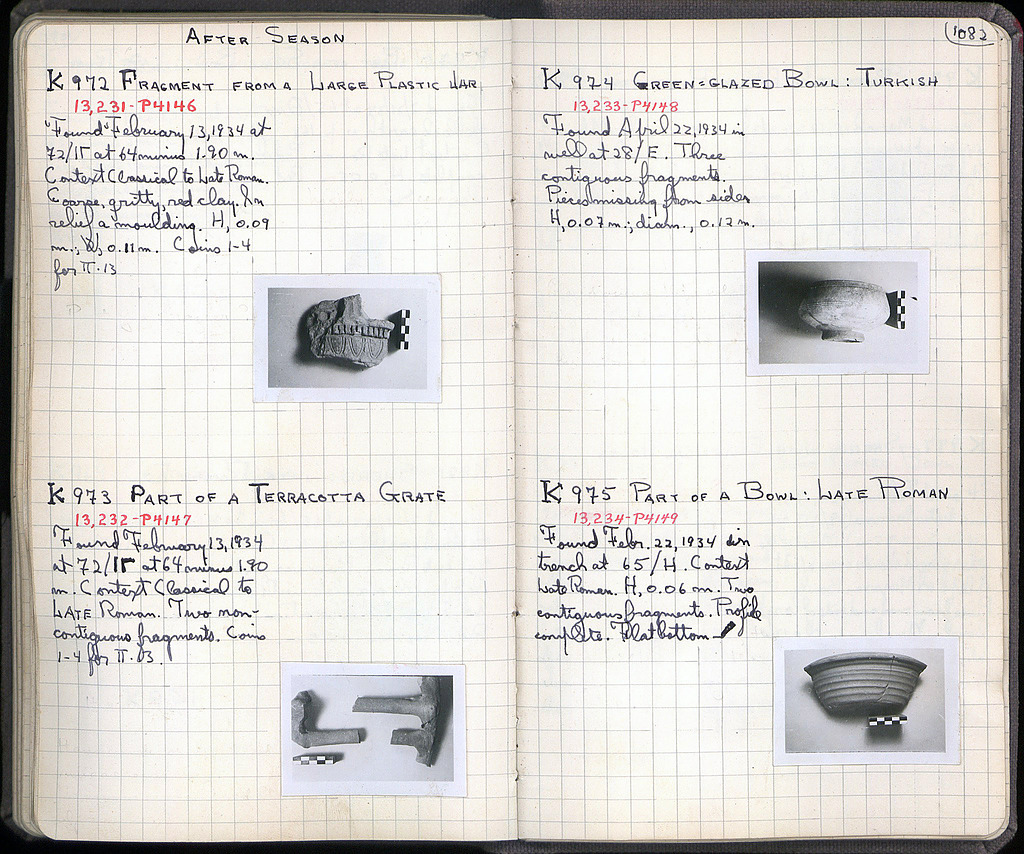 AFTER SEASON
K 972 FRAGMENT FROM A LARGE PLASTIC JAR
13,231-P4146
"Found" February 13, 1934 at
72/ΙΓ at 64 minus 1.90 m.
Context Classical to Late Roman.
Coarse, gritty, red clay. In
relief a moulding. H, 0.09
m.; W, 0.11 m. Coins 1-4
for Π. 13
K 973 PART OF A TERRACOTTA GRATE
13,232-P4147
Found February 13, 1934
at 72/ΙΓ at 64 minus 1.90
m. Context Classical to
LATE Roman. Two non-
contiguous fragments. Coins
1-4 for Π. 13.
1082
K 974 GREEN-GLAZED BOWL: TURKISH
13,233-P4148
Found April 22, 1934 in
well at 28/E. Three
contiguous fragments.
Pieces missing from sides
H, 0.07 m.; diam., 0.12 m.
K 975 PART OF A BOWL: LATE ROMAN
13,234-P4149
Found Febr. 22, 1934 in
trench at 65/H. Context
Late Roman. H, 0.06 m. Two
contiguous fragments. Profile
complete. Flat bottom